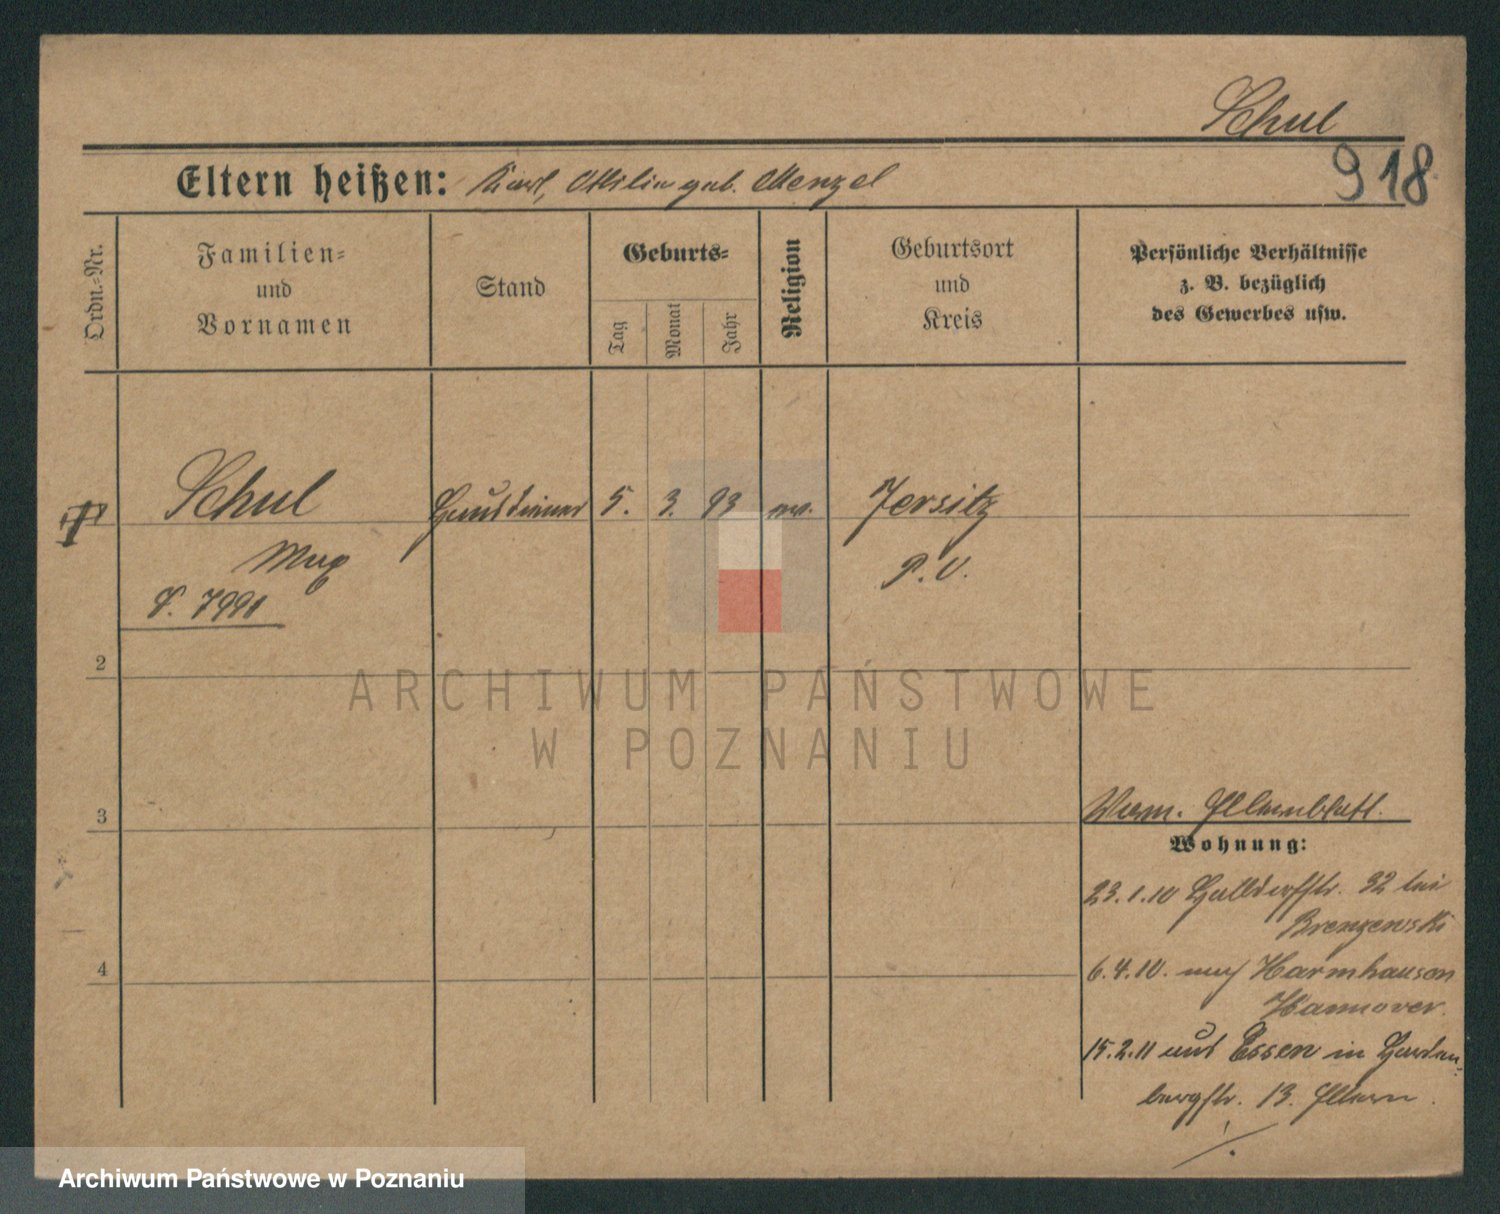 Schul
918
Eltern heißen: Karl, Ottilie geb. Menzel
Ordn.=Nr.
Familien=
und
Vornamen
Stand
Geburts=
Tag
Monat
Jahr
Religion
Geburtsort
und
Kreis
Persönliche Verhältnisse
z. B. bezüglich
des Gewerbes usw.
Schul
Hausdiener
5.
3.
93
ev.
Jersitz
Max
P. O.
7991
2
ARCHIWUM PAŃSTWOWE
W POZNANIU
3
Elternblatt.
Wohnung:
23.1.10 Halldorfstr. 32 bei
Brenzewski
4
6.4.10. nach Harmhausen
Hannover.
15.2.11 aus Essen in Harden-
bergstr. 13. Eltern.
Archiwum Państwowe w Poznaniu